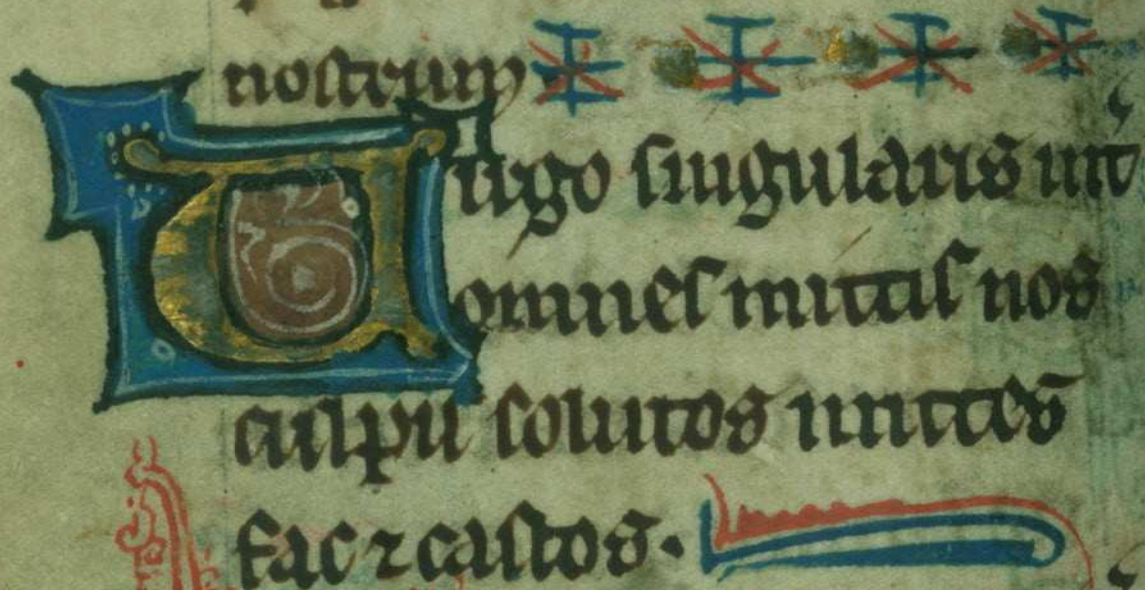 nostrum
Uirgo singularis int
omnes mitis nos
culpis solutos mittes
fac ⁊ castos.